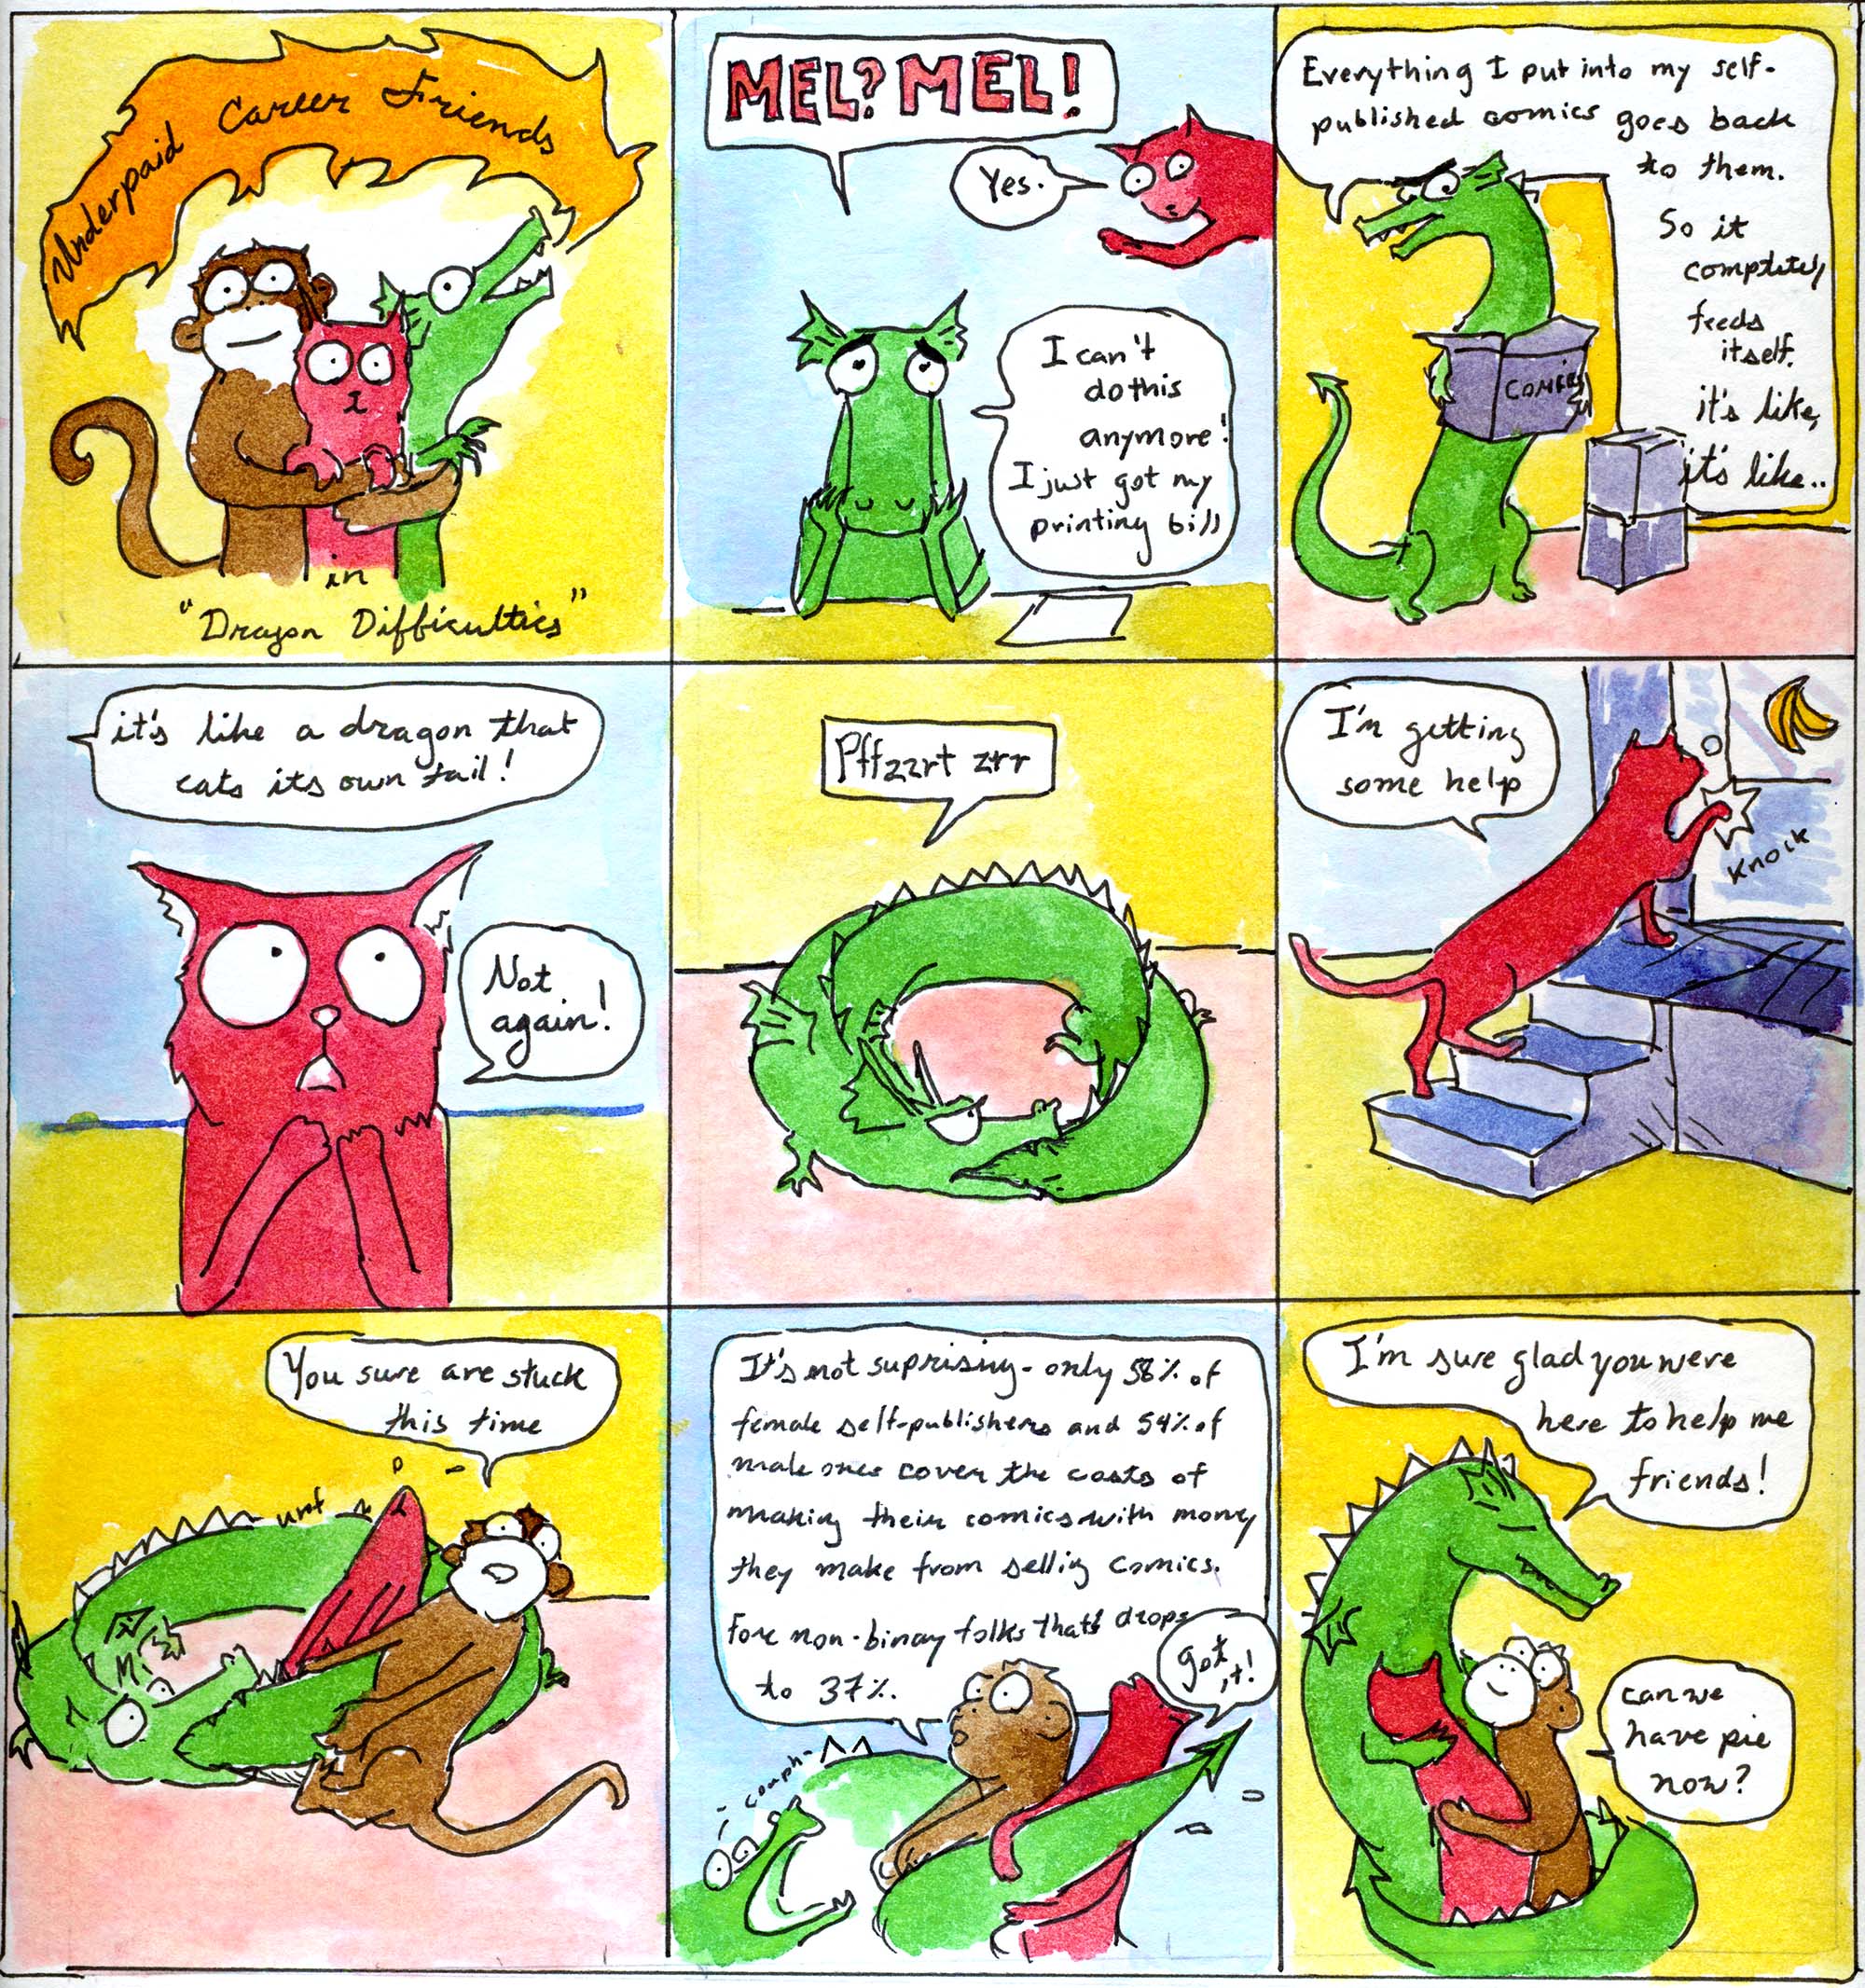 Underpaid Career Friends
in
"Dragon Difficulties"
MEL? MEL!
Yes.
I can't
do this
anymore!
I just got my
printing bill
Everything I put into my self-
published comics goes back
to them.
So it
completely
feeds
itself.
it's like,
it's like..
COMICS
it's like a dragon that
eats its own tail!
Not
again!
Pffzzrt zrr
I'm getting
some help
Knock
You sure are stuck
this time
umf
It's not suprising - only 56% of
female self-publishers and 54% of
male ones cover the costs of
making their comics with money
they make from selling comics.
Fore non-binary folks that drops
to 37%.
got
it!
oomph
I'm sure glad you were
here to help me
friends!
can we
have pie
now?